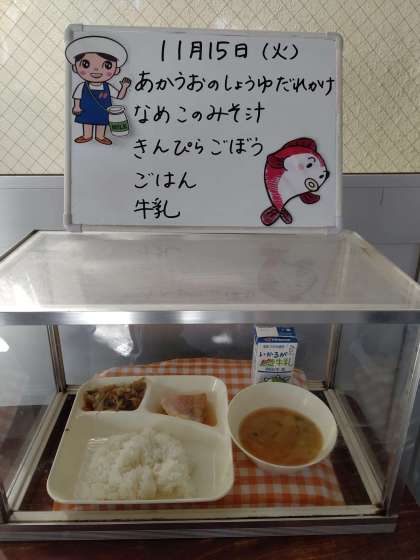 11月15日（火）
あかうおのしょうゆだれかけ
なめこのみそ汁
きんぴらごぼう
ごはん
牛乳
MILK
いかるが
牛乳